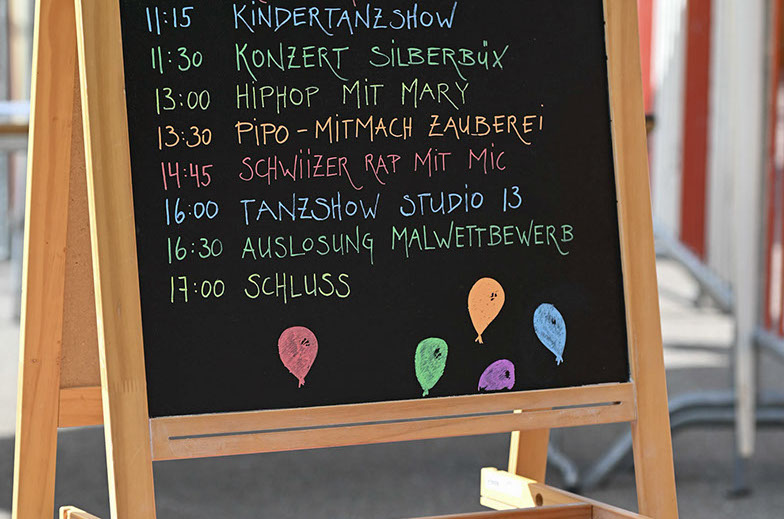 11:15 KINDERTANZSHOW
11:30 KONZERT SILBERBÜX
13:00 HIPHOP MIT MARY
13:30 PIPO-MITMACH ZAUBEREI
14:45 SCHWIIZER RAP MIT MIC
16:00 TANZSHOW STUDIO 13
16:30 AUSLOSUNG MALWETTBEWERB
17:00 SCHLUSS